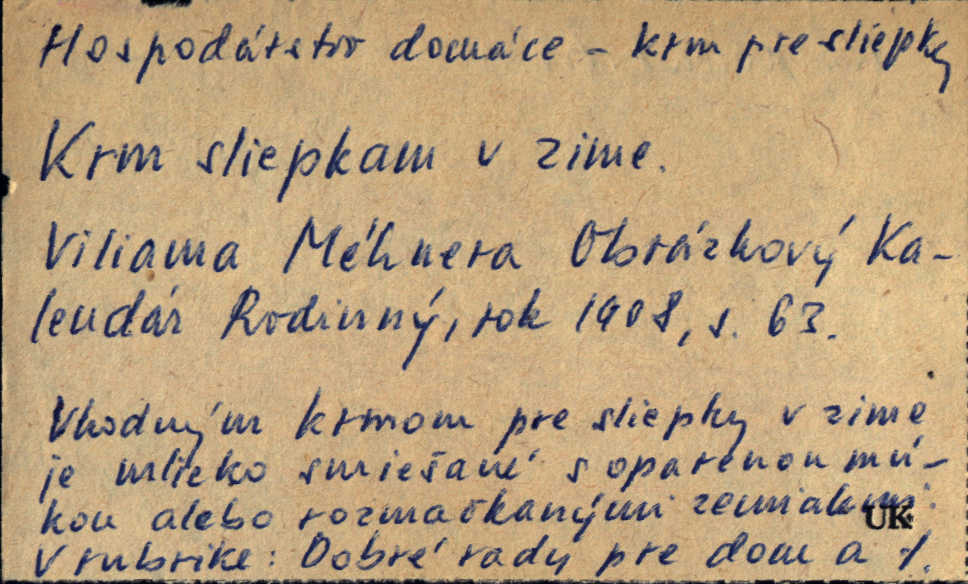 Hospodárstvo domáce - krm pre sliepky
Krm sliepkam v zime.
Viliama Méhnera Obrázkový Ka-
lendár Rodinný, rok 1908, s. 63.
Vhodným krmom pre sliepky v zime
je mlieko smiešané s oparenou mú-
kou alebo rozmačkanými zemiakmi.
UK
V rubrike: Dobré rady pre dom a